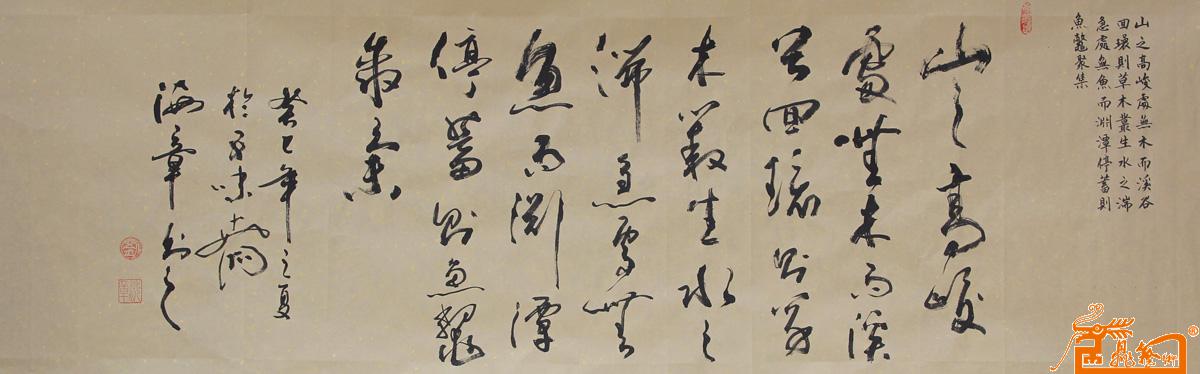 山之高峻處無木而溪谷
回環則草木叢生水之湍
急處無魚而淵潭停蓄則
魚鱉聚集
山之高峻
處無木而溪
谷回環則草
木叢生水之
湍急處無
魚而淵潭
停蓄則魚鱉
聚集
癸巳年之夏
於
海章書之